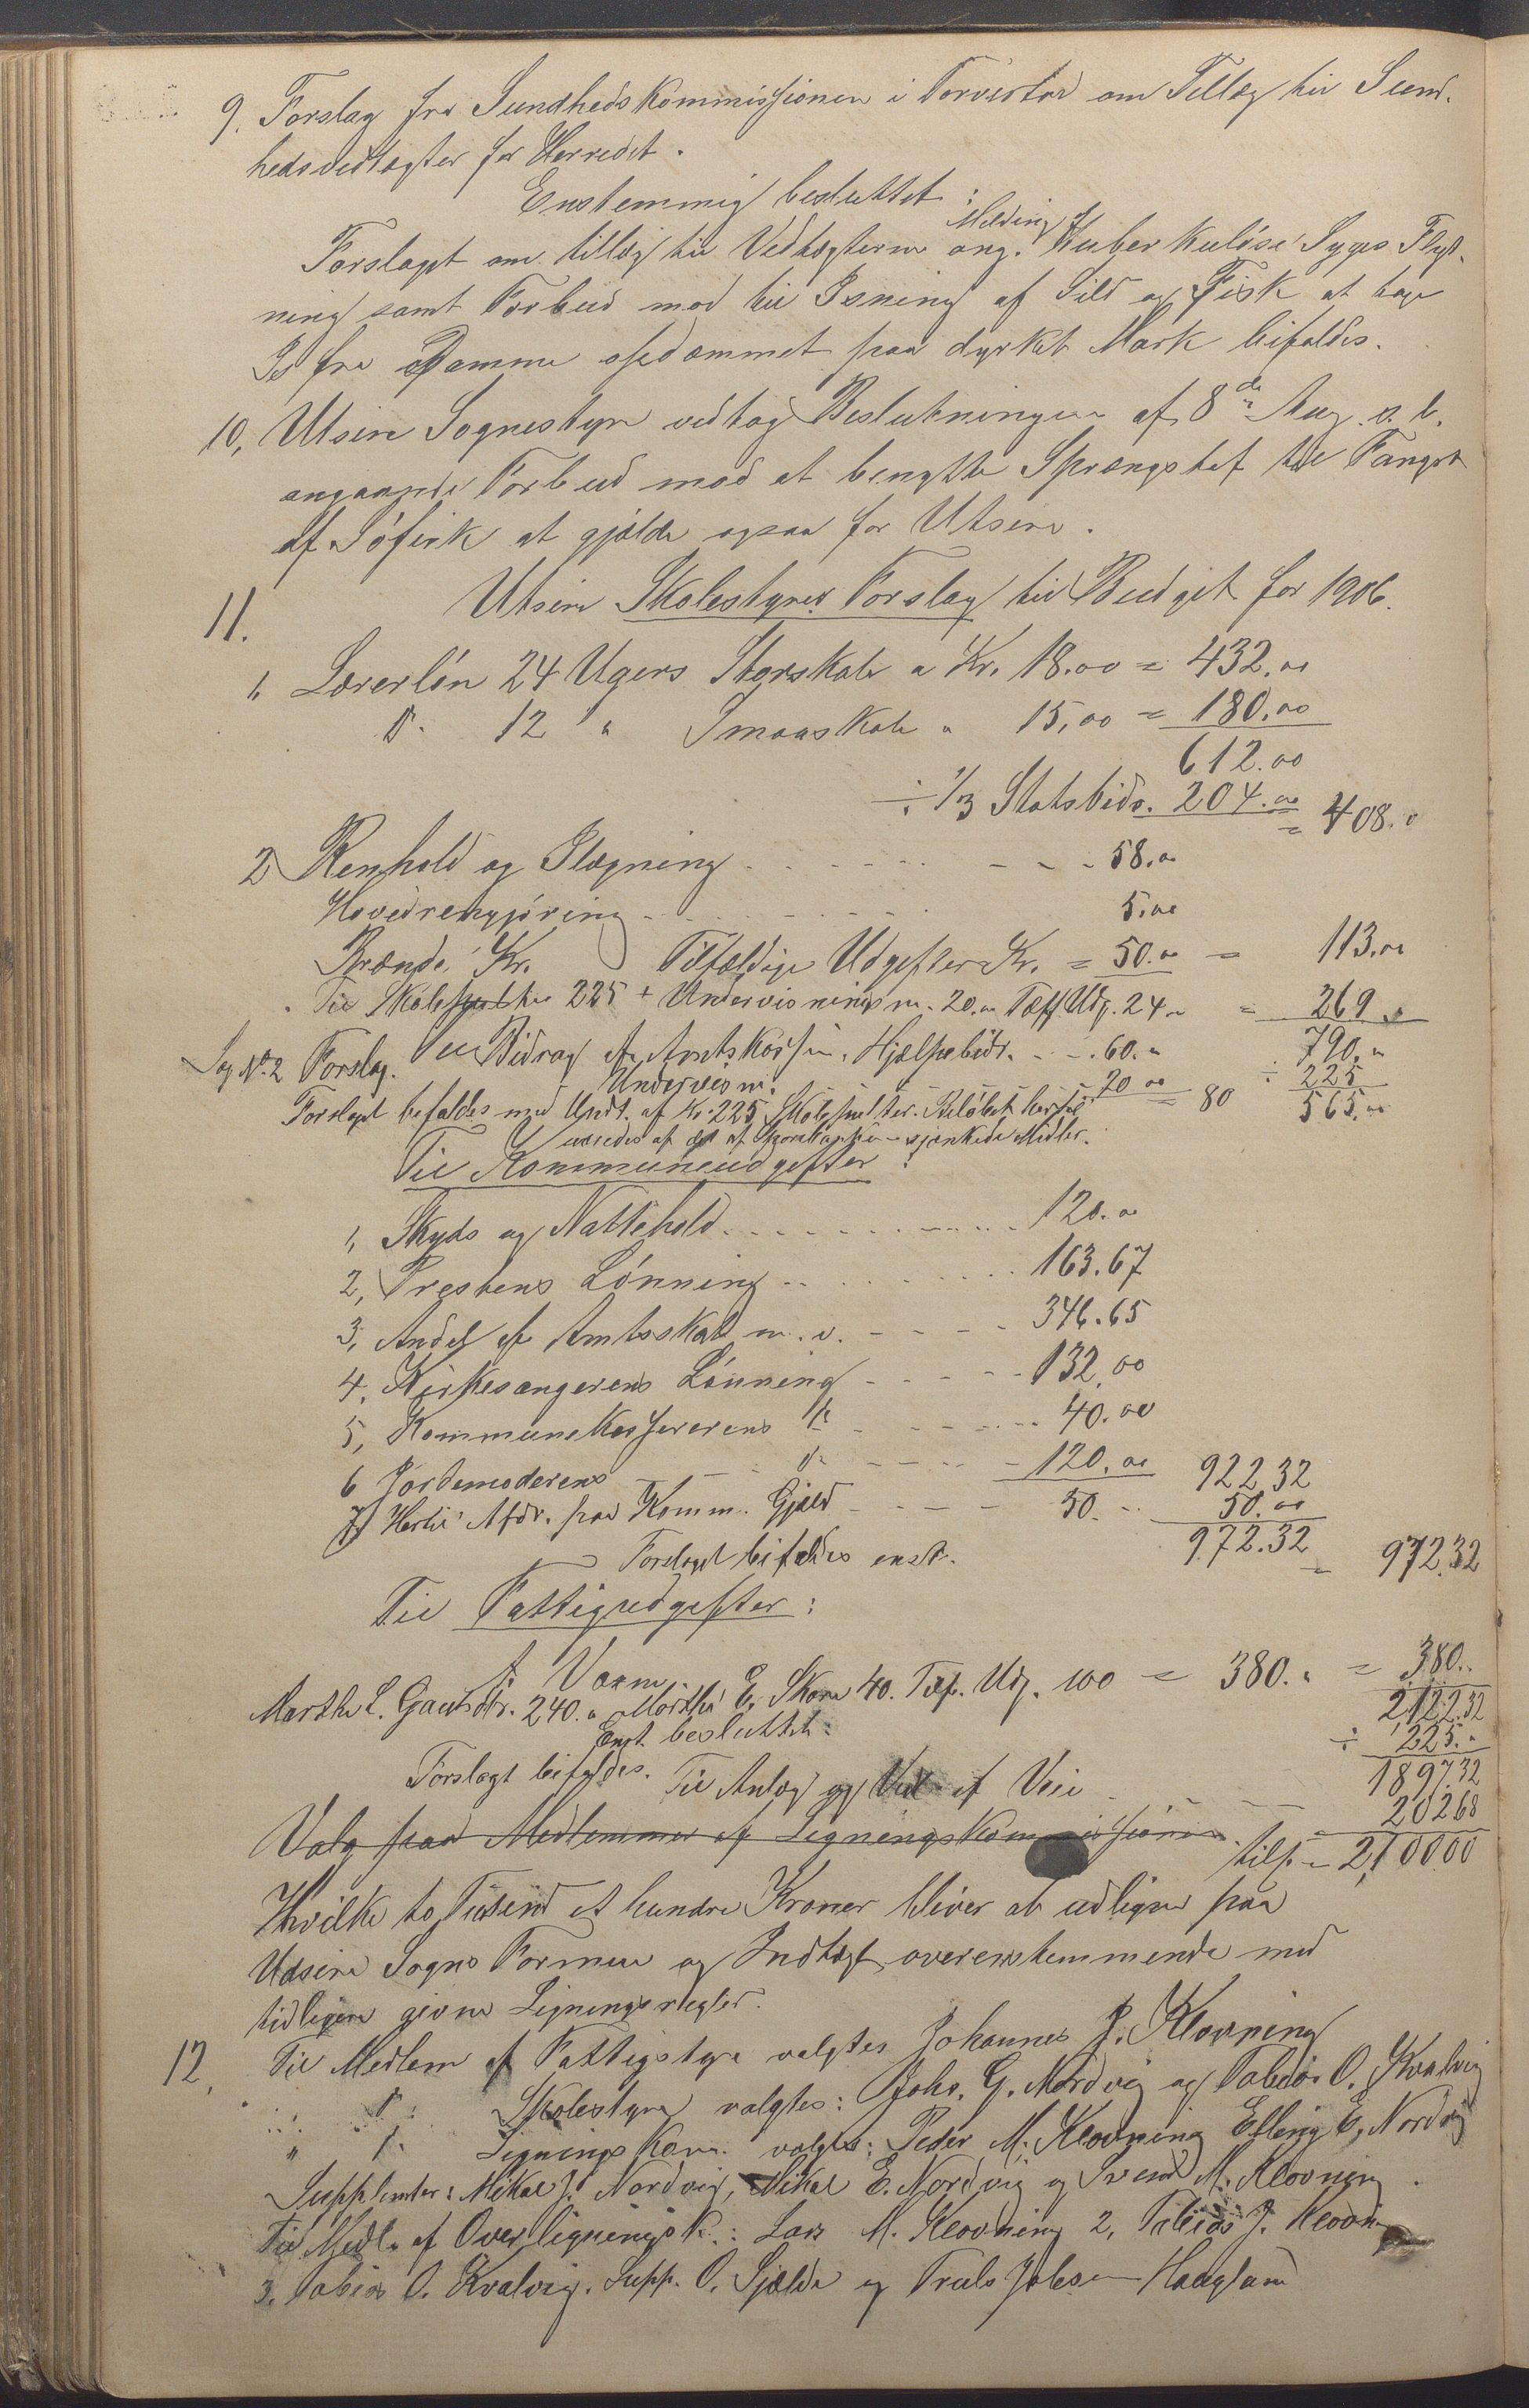 9. Forslag fra Sundhedskommissionen i Torvestad om Tillæg til Sund-
hedsvedtægter for Herredet.
Enstemmig besluttet:
Melding
Forslaget om tillæg til Vedtægterne ang. Tuberkuløse Syges Flyt-
ning samt Forbud mod til Isning af Sild og Fisk at tage
Is fra Damme opdæmmet paa dyrket Mark bifaldes.
10, Utsire Sognestyre vedtog Beslutningen af 8de Aug. d. A.
angaaende Forbud mod at benytte Sprængstof til Fangst
af Søfisk at gjælde ogsaa for Utsire.
11. Utsire Skolestyres Forslag til Budget for 1906.
1, Lærerløn 24 Ugers Storskole a Kr. 18.00 = 432.00
do. 12 " Smaaskole " 15,00 = 180.00
612.00
÷ 1/3 Statsbidr. 204.00 = 408.0
2 Renhold og Ilægning - - - 58.00
Hovedrengjøring - - - 5.00
Brænde, Kr. Tilfældige Udgifter Kr. = 50.00 = 113.00
Til Skolepulte 225 + Undervisningsm. 20.00 Tilf. Udg. 24 " = 269
Sag No. 2 Forslag. Bidrag af Amtskassen, Hjælpebidr. - - 60. " 790. "
Undervism. 20 00 = 80 ÷ 225
Forslaget bifaldes med Undt. af Kr. 225 Skolepulter. Beløbet hertil 565.00
udredes af de af Sparekassen skjænkede Midler.
Til Kommuneudgifter:
1, Skyds og Nattehold - - - 120.00
2, Prestens Lønning - - - 163.67
3, Andel af Amtsskat m. v. - - - 346.65
4, Kirkesangerens Lønning - - - 132.00
5, Kommunekassererens do - - - 40.00
6 Jordemoderens do - - - 120.00 922 32
7) Hertil Afdr. paa Komm. Gjæld - - - 50. - 50.00
Forslaget bifaldes enst. 972.32 = 972.32
Til Fattigudgifter:
Marthe L. Kr. 240. " Marthe E. 40. Tilf. Udg. 100 = 380. " = 380. "
2122.32
Enst. besluttet: ÷ 225. "
Forslaget bifaldes. Til Anlæg og Vedl. af Vei 1897.32
202 68
Valg paa Medlemmer af Ligningskommissionen tils. = 2,100 00
Hvilke to Tusend et hundre Kroner bliver at udligne paa
Udsire Sogns Formue og Indtægt overensstemmende med
tidligere givne Ligningsregler.
12, Til Medlem af Fattigstyre valgtes Johannes J. Klovning
" do Skolestyre valgtes: Johs. G. Nordvig og Tobias O. Kvalvig
" do Ligningskom. valgtes: Peder M. Klovning Elling E. Nordvig
Supplenter: Mikal J. Nordvig, Mikal E. Nordvig og Svend M. Klovning.
Til Medl. af Overligningsk.: Lars M. Klovning 2, Tobias J. Klovn
3. Tobias O. Kvalvig. Supp. O. Sjælde og Truls Haugland